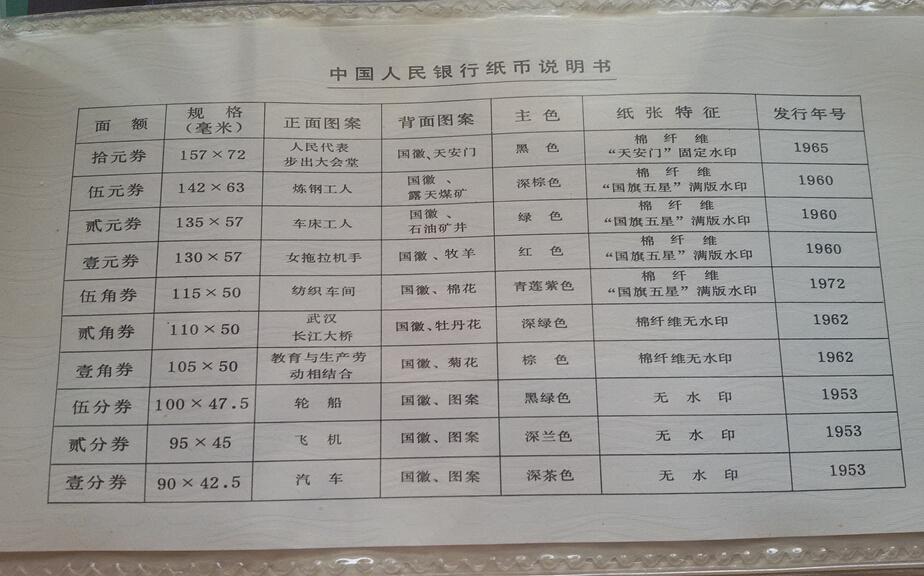 中国人民银行纸币说明书
面 额 规 格（毫米） 正面图案 背面图案 主 色 纸 张 特 征 发行年号
拾元券 157×72 人民代表步出大会堂 国徽、天安门 黑 色 棉 纤 维“天安门”固定水印 1965
伍元券 142×63 炼钢工人 国徽、露天煤矿 深棕色 棉 纤 维“国旗五星”满版水印 1960
贰元券 135×57 车床工人 国徽、石油矿井 绿 色 棉 纤 维“国旗五星”满版水印 1960
壹元券 130×57 女拖拉机手 国徽、牧羊 红 色 棉 纤 维“国旗五星”满版水印 1960
伍角券 115×50 纺织车间 国徽、棉花 青莲紫色 棉 纤 维“国旗五星”满版水印 1972
贰角券 110×50 武汉长江大桥 国徽、牡丹花 深绿色 棉纤维无水印 1962
壹角券 105×50 教育与生产劳动相结合 国徽、菊花 棕 色 棉纤维无水印 1962
伍分券 100×47.5 轮 船 国徽、图案 黑绿色 无 水 印 1953
贰分券 95×45 飞 机 国徽、图案 深兰色 无 水 印 1953
壹分券 90×42.5 汽 车 国徽、图案 深茶色 无 水 印 1953